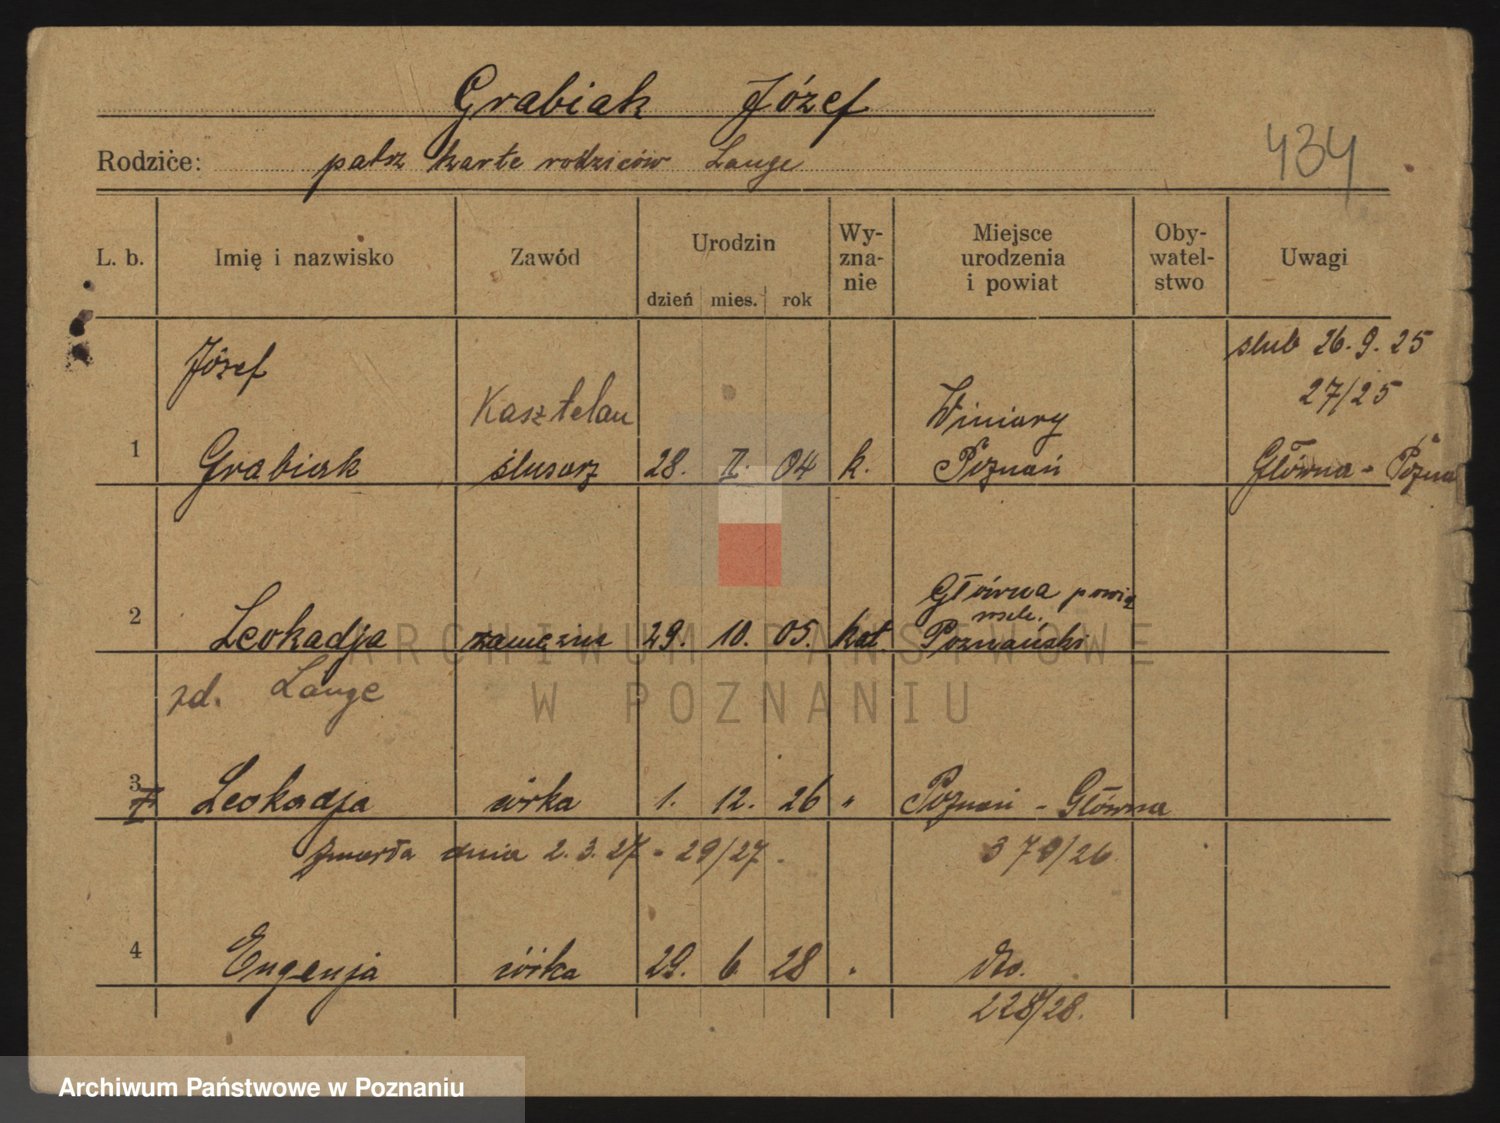 Grabiak Józef
434
Rodzice: patrz karte rodziców Lange
L. b. Imię i nazwisko Zawód Urodzin dzień mies. rok Wy-zna-nie Miejsce urodzenia i powiat Oby-watel-stwo Uwagi
ślub 26. 9. 25
Józef
27/25
Kasztelan
Winiary
1 Grabiak ślusarz 28. II. 04 k. Poznań Główna - Pozna
Główna powia
2 Leokadja zamężna 29. 10. 05. kat. Poznański
ARCHIWUM PAŃSTWOWE
zd. Lange
W POZNANIU
3 Leokadja córka 1. 12. 26 " Poznań - Główna
zmarła dnia 2. 3. 27 - 29/27. 379/26.
4 Eugenja córka 29. 6 28 " dto.
228/28.
Archiwum Państwowe w Poznaniu